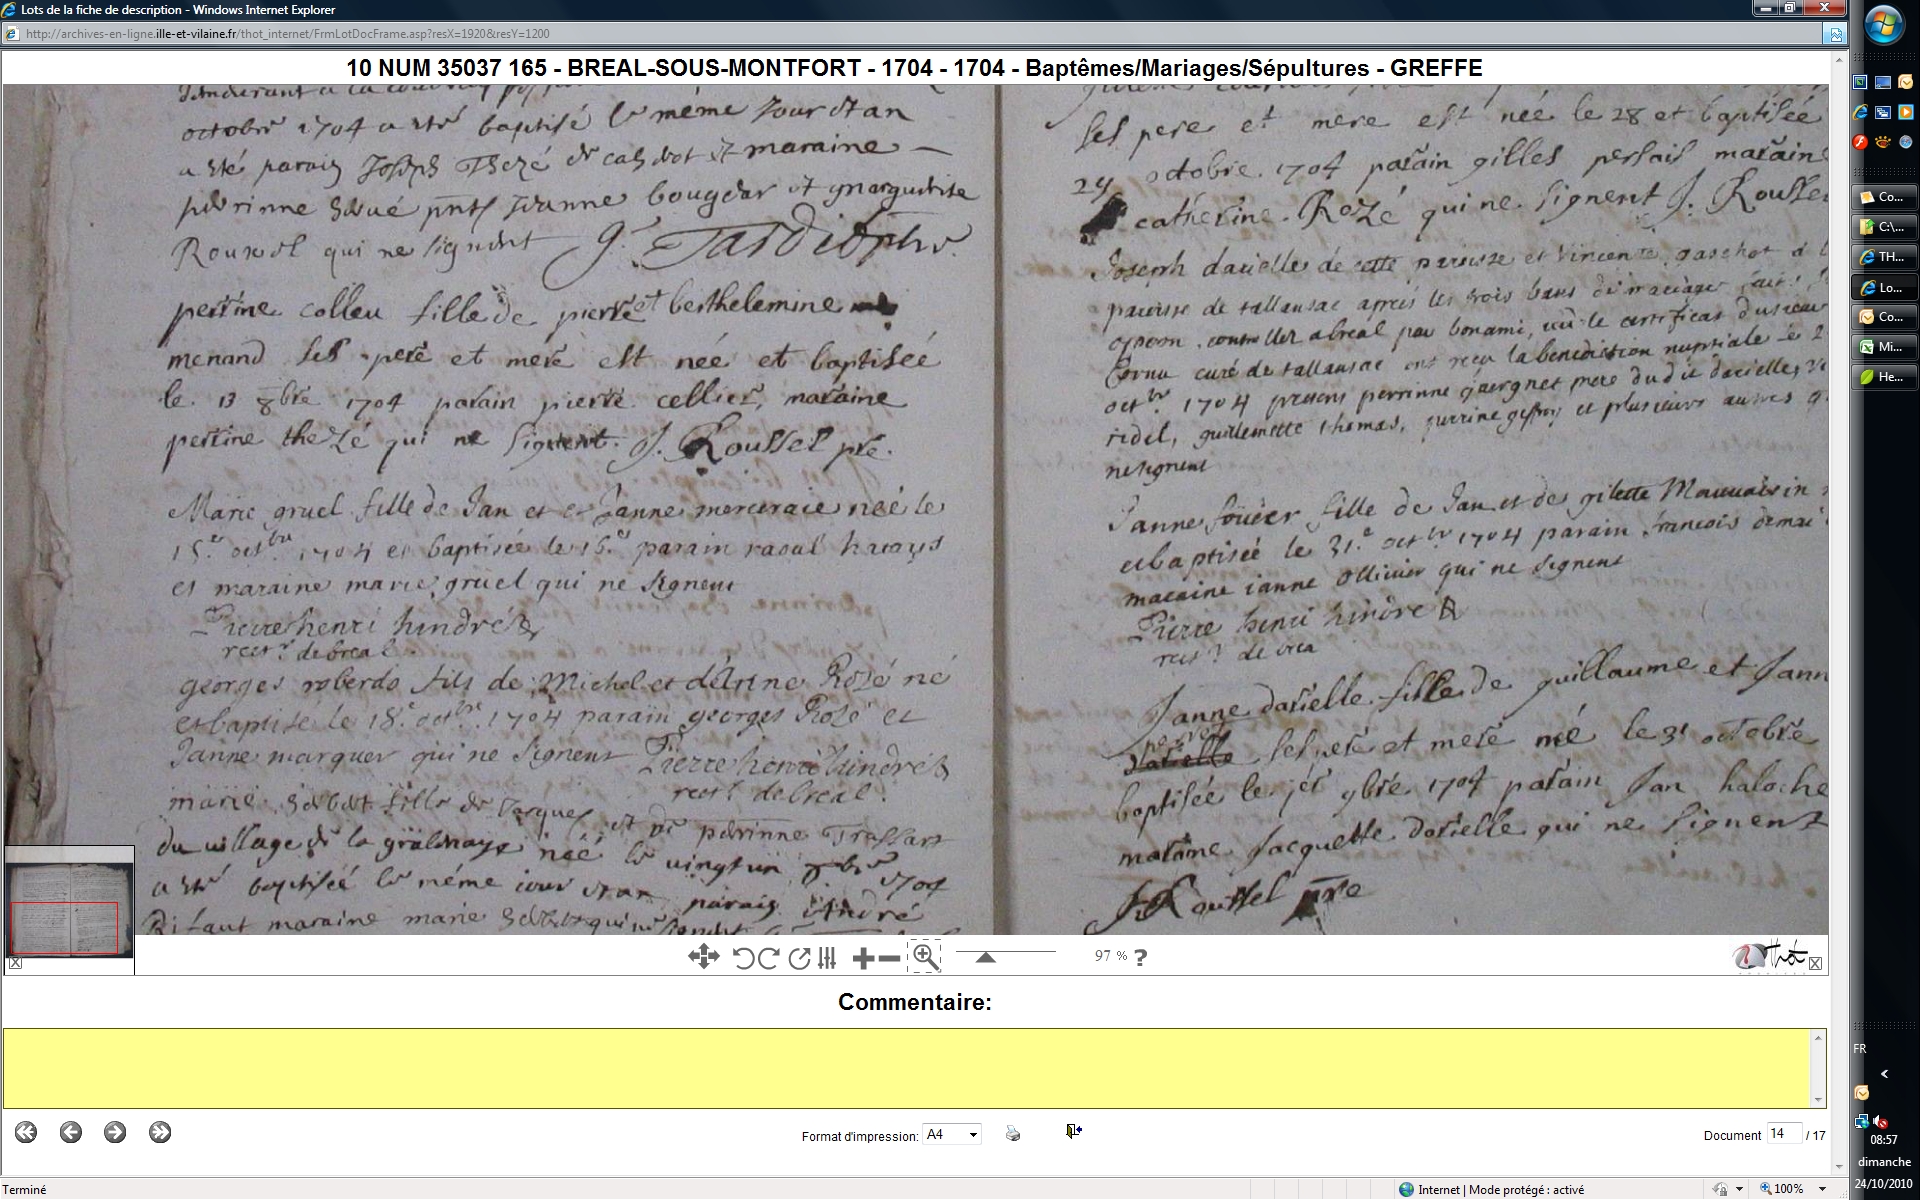 Lots de la fiche de description - Windows Internet Explorer
http://archives-en-ligne.ille-et-vilaine.fr/thot_internet/FrmLotDocFrame.asp?resX=1920&resY=1200
10 NUM 35037 165 - BREAL-SOUS-MONTFORT - 1704 - 1704 - Baptêmes/Mariages/Sépultures - GREFFE
octobre 1704 a esté baptisé le même jour et an
a esté parain Joseph et maraine
perinne Janne et marguerite
Rouxel qui ne signent
perrine colleu fille de pierre et berthelemine
menand ses pere et mere est née et baptiseé
le 13 8bre 1704 parain pierre cellier, maraine
perrine thezé qui ne signent. J. Roussel pre.
Marie gruel fille de Jan et et Janne merceraie neé le
15e octbre 1704 et baptisée le 16e parain raoul
et maraine marie gruel qui ne signent
Pierre henri hindré
rectr de breal
georges roberdo fils de Michel et Rozé né
et baptisé le 18e octbre 1704 parain georges Rozé et
Janne marquer qui ne signent Pierre henri hindré
rectr de breal.
marie fille de Jacques et de perinne Trassart
du village de la neé le vingtun 8bre 1704
a esté baptiseé le même jour et an parain André
maraine marie qui ne signent
ses pere et mere est neé le 28 et baptiseé
29 octobre 1704 parain gilles persais maraine
catherine Rozé qui ne signent J. Roussel
Joseph darielle de cette paroisse et vincente gaschot de l
paroisse de tallansac aprés les trois bans de mariage fait
controller a breal par bonami, vu le certificat du sieur
Cornu curé de tallansac ont reçu la benediction nuptiale le 2
octbre 1704 presens perrinne mere dudit darielle,
ridel, guillemette thomas, perrine et plusieurs autres q
ne signent
Janne fille de Jan et de gilette Mauvoisin
et baptisée le 31e octbre 1704 parain francois
maraine janne ollivier qui ne signent
Pierre henri hindré
rectr de brea
Janne darielle fille de guillaume et Jann
ses pere et mere neé le 31 octobre
baptisée le jer 9bre 1704 parain Jan haloche
maraine Jacquette darielle qui ne signent
J. Roussel pre
97 %
?
Thot
Commentaire:
Format d'impression: A4
Document 14 / 17
Terminé
Internet | Mode protégé : activé
100%
Co...
C:\...
TH...
Lo...
Co...
Mi...
He...
FR
08:57
dimanche
24/10/2010